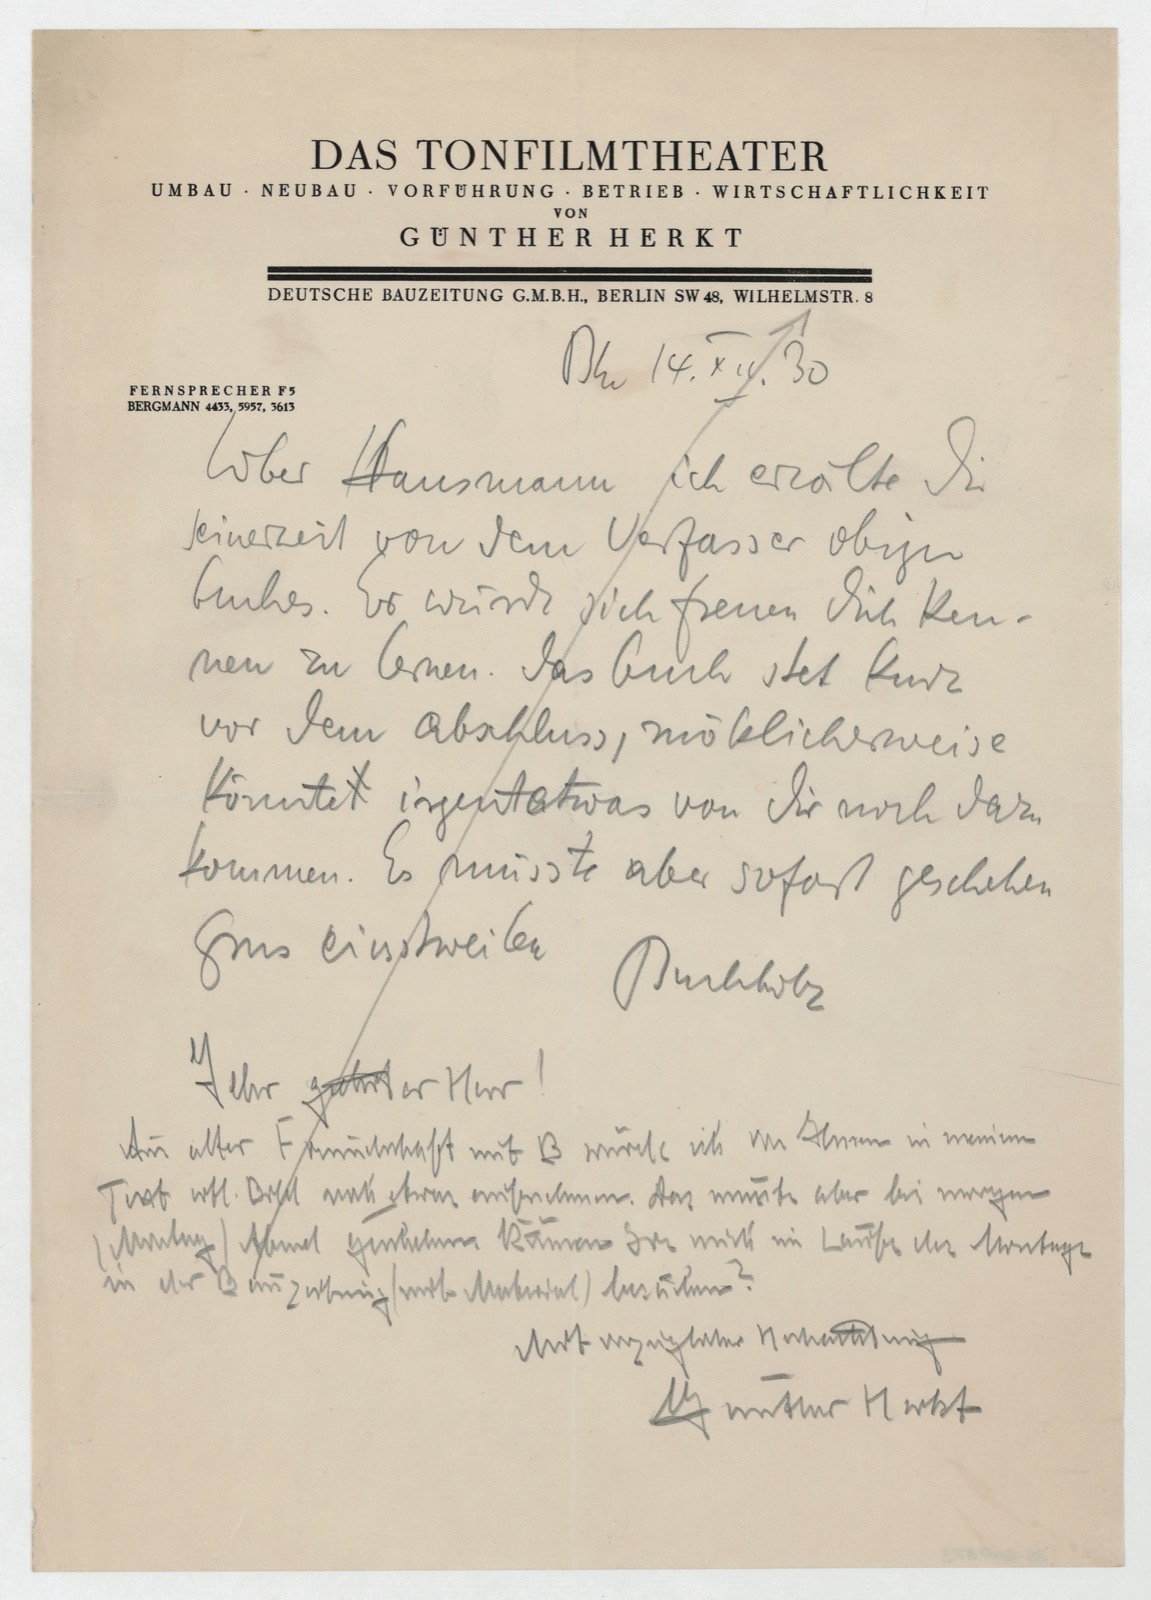 DAS TONFILMTHEATER
UMBAU · NEUBAU · VORFÜHRUNG · BETRIEB · WIRTSCHAFTLICHKEIT
VON
GÜNTHER HERKT
DEUTSCHE BAUZEITUNG G.M.B.H., BERLIN SW 48, WILHELMSTR. 8
Bln 14. XII. 30
FERNSPRECHER F5
BERGMANN 4433, 5957, 3613
Lieber Hausmann ich erzälte Dir
seinerzeit von dem Verfasser obigen
buches. Er würde sich freuen Dich ken-
nen zu lernen. das buch stet kurz
vor dem abschluss, möklicherweise
könnte irgentetwas von dir noch dazu
kommen. Es müsste aber sofort geschehen
Grus einstweilen
Buchholz
Sehr geehrter Herr!
Aus alter Freundschaft mit B würde ich von Ihnen in meinen
Text noch etwas aufnehmen. Das müsste aber bei morgen
(Montag) Abend geschehen Kämen Sie mich im Laufe des Montags
in der Bauzeitung (mit Material) besuchen?
Mit vorzüglicher Hochachtung
Günther Herkt